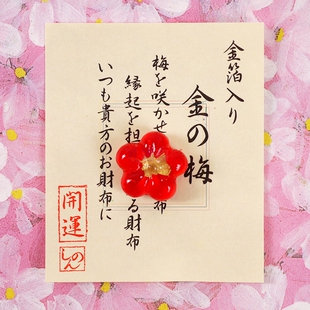 金箔入り
金の梅
梅を咲かせ
布
縁起を担
る財布
いつも貴方のお財布に
開運
しのん